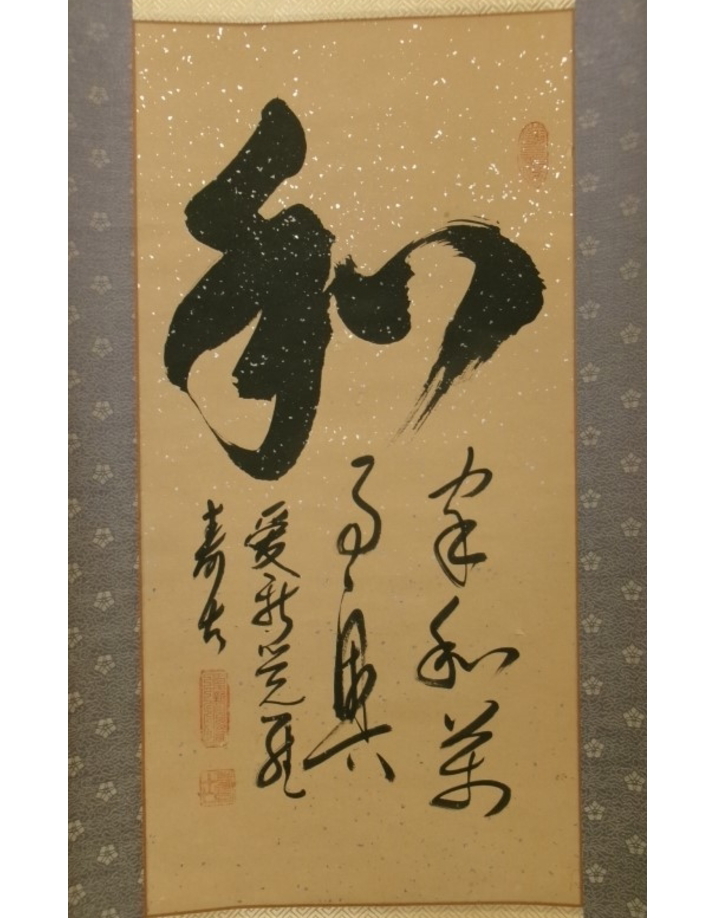 和
家和萬
事興
愛新覚羅
壽古